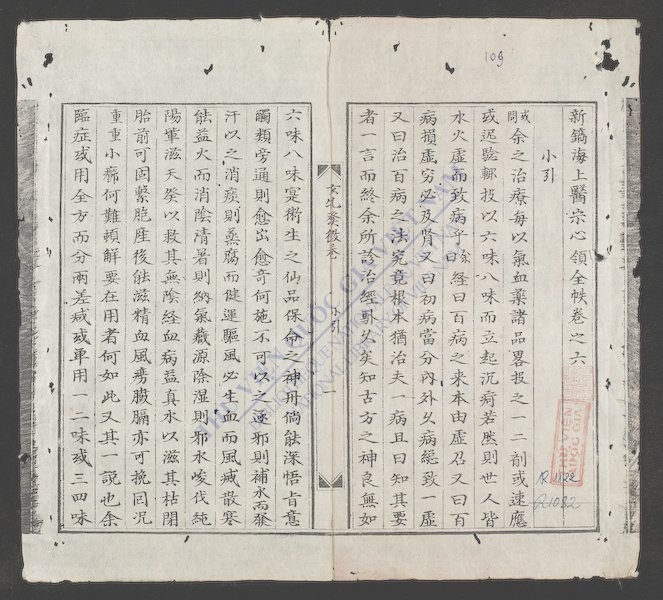 109
新鐫海上醫宗心領全帙卷之六
小引
或問余之治療每以氣血藥諸品畧投之一二劑或速應
或遲驗輒投以六味八味而立起沉痾若然則世人皆
水火虛而致病乎余曰經曰百病之来本由虛召又曰百
病損虛穷必及腎又曰初病當分內外久病總致一虛
又曰治百病之法究竟根本猶治夫一病且曰知其要
者一言而終余所診治經騐久矣知古方之神良無如
玄牝發微卷 小引 一
六味八味寔衛生之仙品保命之神丹倘能深悟肯意
觸類旁通則愈出愈奇何施不可以之逐邪則補水而發
汗以之消痰則蒸腐而健運驅風必生血而風威散寒
能益火而消陰清暑則納氣藏源除湿則邪水峻伐純
陽單滋天癸以救其無陰經血病益真水以滋其枯閉
胎前可固繫胞產後能滋精血風癆臌膈亦可挽囘况
重重小疹何難頓解要在用者何如此又其一說也余
臨症或用全方而分兩差減或单用一二味或三四味
R.1122
R.1092